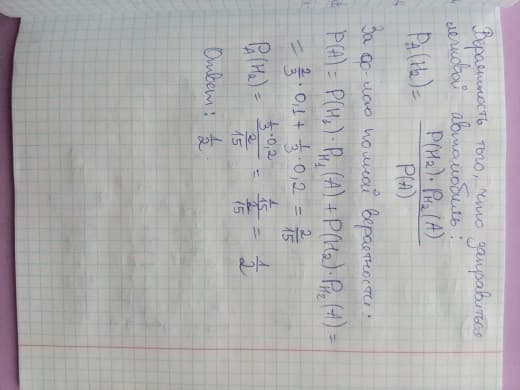 Вероятность того, что заправиться
легковой автомобиль:
P_A(H₂) = P(H₂)·P_H₂(A) / P(A)
За ф-лою полной вероятности:
P(A) = P(H₁)·P_H₁(A) + P(H₂)·P_H₂(A) =
= 2/3 · 0,1 + 1/3 · 0,2 = 2/15
P_A(H₂) = (1/3 · 0,2) / (2/15) = (1/15) / (2/15) = 1/2
Ответ: 1/2.